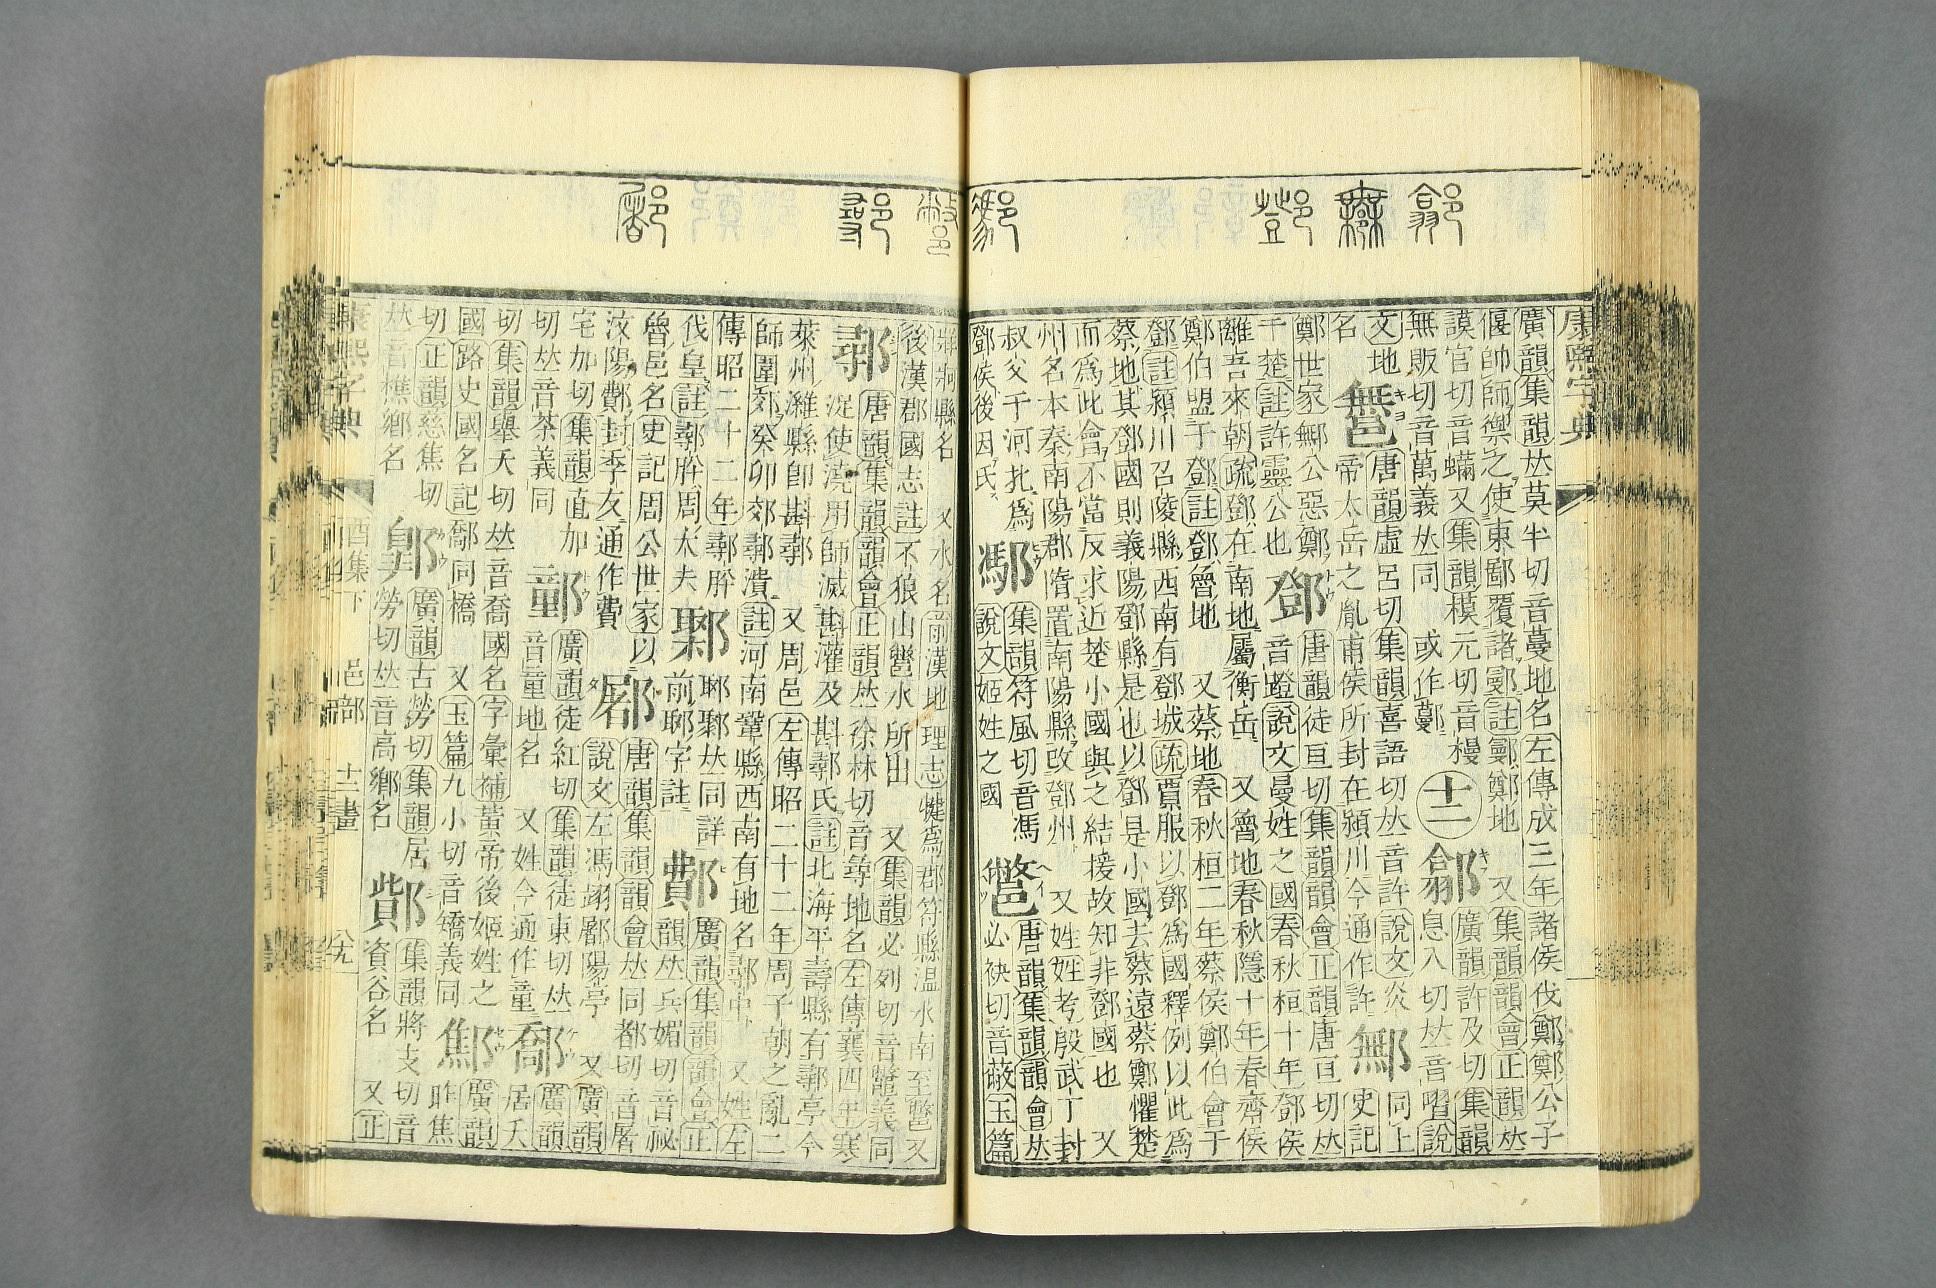 康熙字典
廣韻集韻𠀤莫半切音蔓地名左傳成三年諸侯伐鄭鄭公子
偃帥師禦之使東鄙覆諸鄤註鄤鄭地 又集韻韻會正韻𠀤
謨官切音蹣又集韻模元切音樠
無販切音萬義𠀤同 或作鄤
十二
鄃廣韻許及切集韻
息入切𠀤音習說
文地名
𨞼唐韻虛呂切集韻喜語切𠀤音許說文炎
帝太岳之胤甫侯所封在潁川今通作許
鄦同上史記
鄭世家鄦公惡鄭
于楚註許靈公也
鄧唐韻徒亙切集韻韻會正韻唐亙切𠀤
音蹬說文曼姓之國春秋桓十年鄧侯
離吾來朝疏鄧在南地屬衡岳 又魯地春秋隱十年春齊侯
鄭伯盟于鄧註鄧魯地 又蔡地春秋桓二年蔡侯鄭伯會于
鄧註潁川召陵縣西南有鄧城疏賈服以鄧爲國釋例以此爲
蔡地其鄧國則義陽鄧縣是也以鄧是小國去蔡遠蔡鄭懼楚
而爲此會不當反求近楚小國與之結援故知非鄧國也 又
州名本秦南陽郡隋置南陽縣改鄧州 又姓姓考殷武丁封
叔父于河北爲
鄧侯後因氏
䣝集韻符風切音馮
說文姬姓之國
鷩唐韻集韻韻會𠀤
必袂切音蔽玉篇
牂牁縣名 又水名前漢地理志犍爲郡符縣温水南至鷩入
後漢郡國志註不狼山鷩水所出 又集韻必列切音鼈義同
鄩唐韻集韻韻會正韻𠀤徐林切音尋地名左傳襄四年寒
浞使澆用師滅斟灌及斟鄩氏註北海平壽縣有鄩亭今
萊州濰縣卽斟鄩 又周邑左傳昭二十二年周子朝之亂二
師圍郊癸卯郊鄩潰註河南鞏縣西南有地名鄩中 又姓左
傳昭二十二年鄩肸
伐皇註鄩肸周大夫
鄹郰聚𠀤同詳
前郰字註
鄪廣韻集韻韻會正
韻𠀤兵媚切音祕
魯邑名史記周公世家以
汶陽鄪封季友通作費
𨞾唐韻集韻韻會𠀤同都切音屠
說文左馮翊𨞾陽亭 又廣韻
宅加切集韻直加
切𠀤音茶義同
䣙廣韻徒紅切集韻徒東切𠀤
音童地名 又姓今通作童
鄥廣韻
居夭
切集韻舉夭切𠀤音喬國名字彙補黃帝後姬姓之
國路史國名記鄥同橋 又玉篇九小切音矯義同
𨞪廣韻
昨焦
切正韻慈焦切
𠀤音樵鄉名
鄡廣韻古勞切集韻居
勞切𠀤音高鄉名
鄑集韻將支切音
資谷名 又正
康熙字典 酉集下 邑部 十二畫 八九